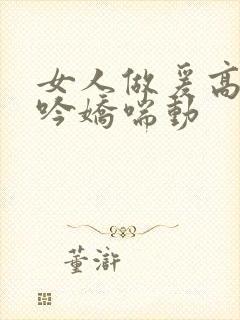 女人做爰高
吟嬌喘動
董滸